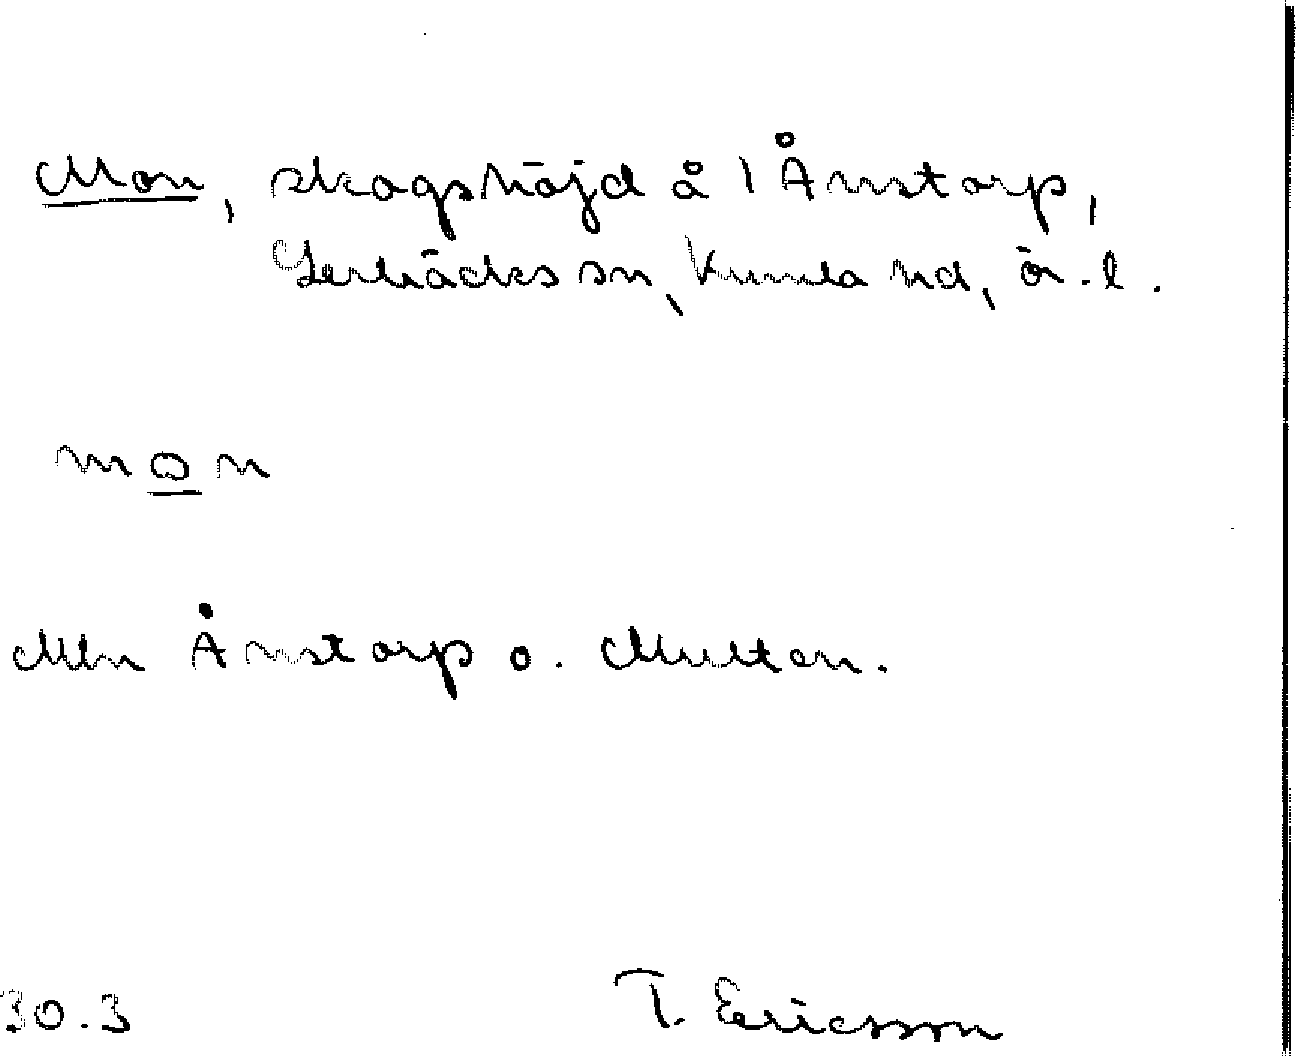 Mon, skogshöjd å 1 Ånstorp,
Lerbäcks sn, Kumla hd, ör.l.
mon
Mln Ånstorp o. Multen.
30.3 T. Ericsson